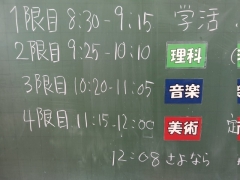 1限目 8:30-9:15 学活
2限目 9:25-10:10 理科
3限目 10:20-11:05 音楽
4限目 11:15-12:00 美術
12:08 さよなら